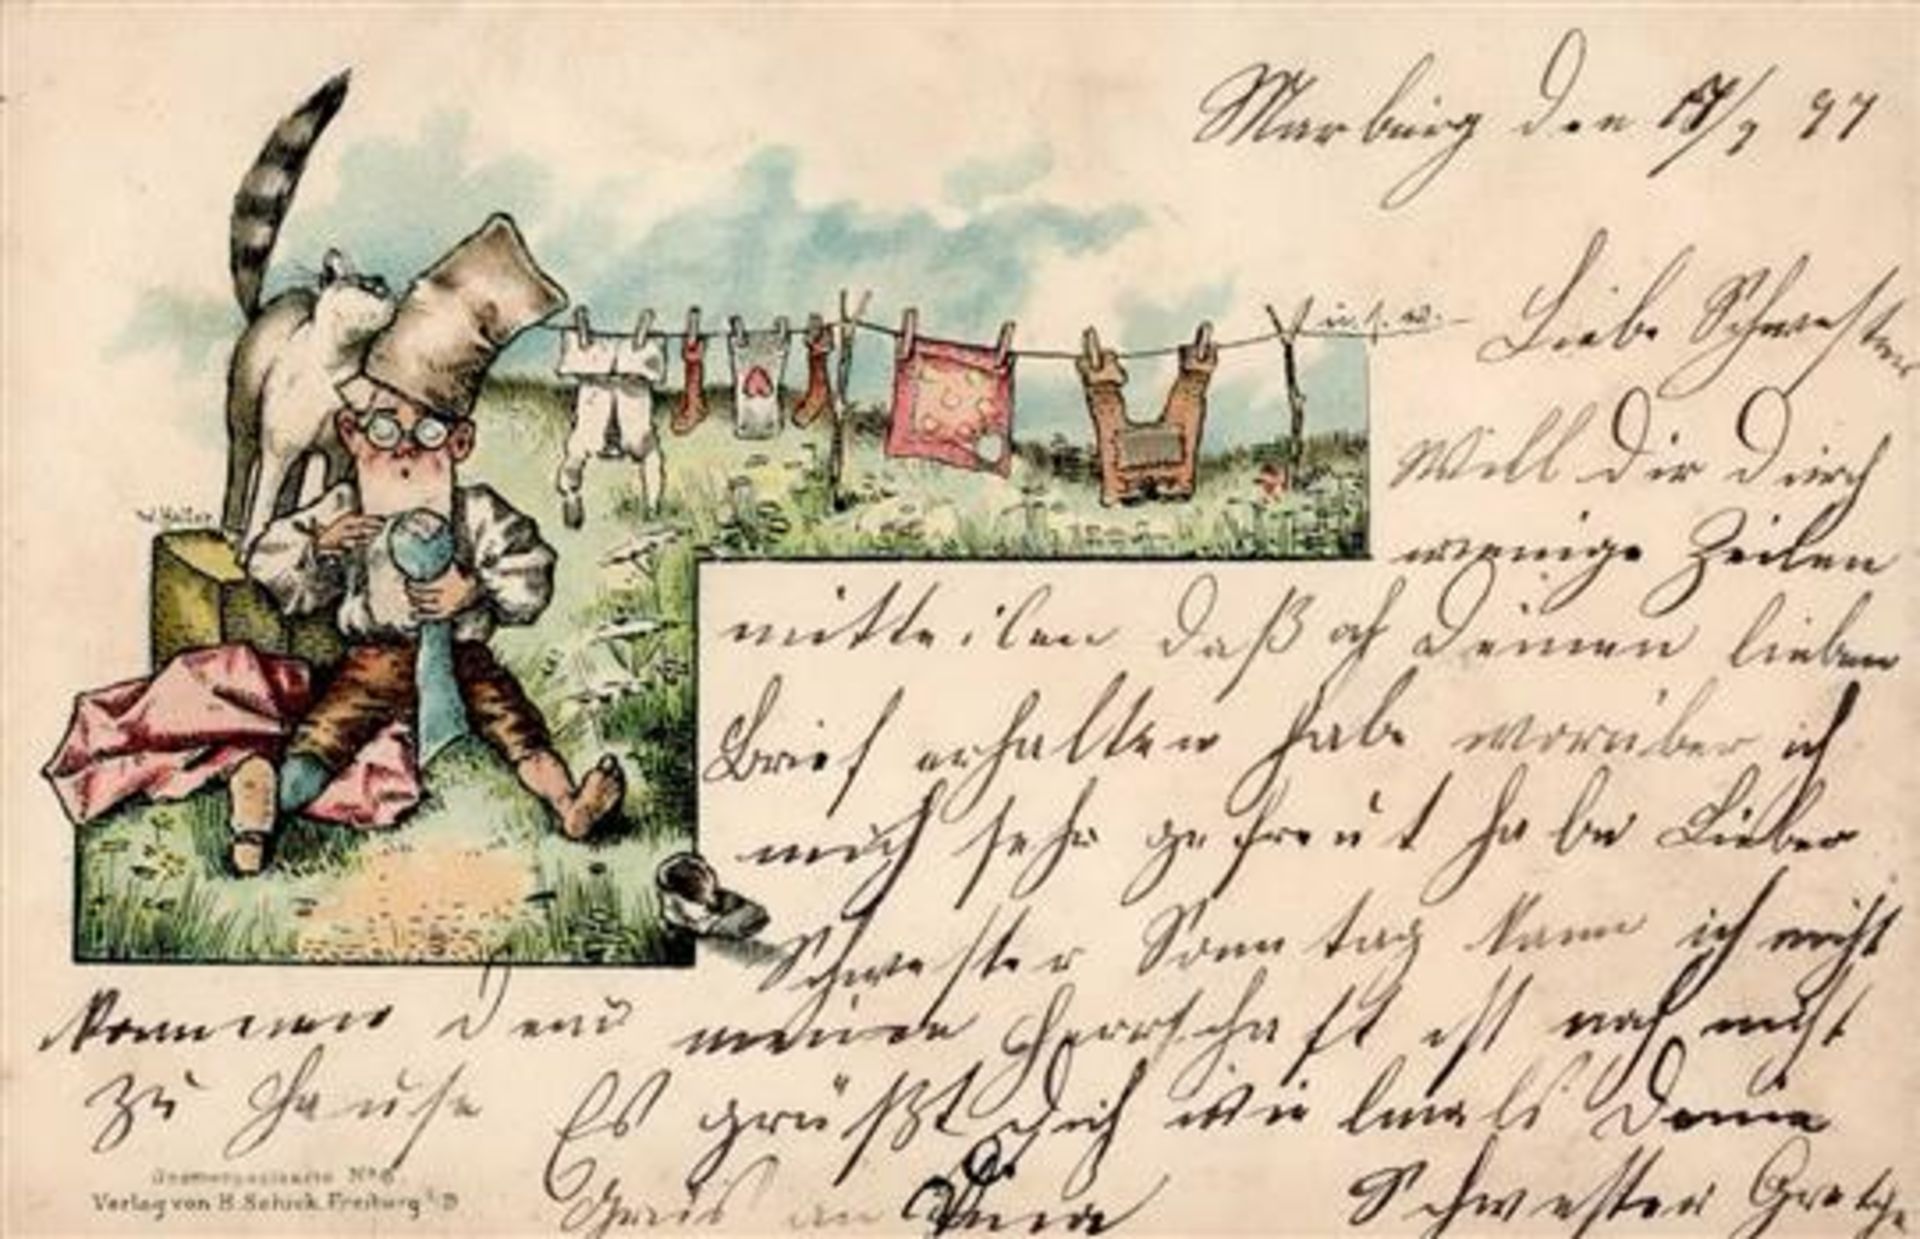 Marburg den 17/9 97
u.s.w.
Liebe Schwester
Will Dir durch
wenige Zeilen
mitteilen daß ich Deinen lieben
Brief erhalten habe worüber ich
mich sehr gefreut habe Lieber
Schwester Sonntag kann ich nicht
kommen denn meine Herrschaft ist noch nicht
zu Hause Es grüßt Dich vielmals Deine
Gruß an Schwester Gretche
Gnomenpostkarte No 6
Verlag von B. Schick. Freiburg i/B